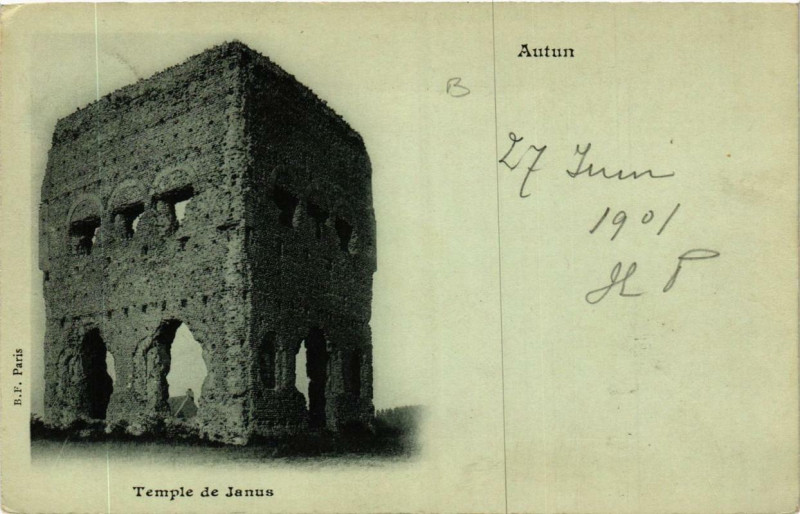 Autun
B
27 Juin
1901
H P
B.F. Paris
Temple de Janus